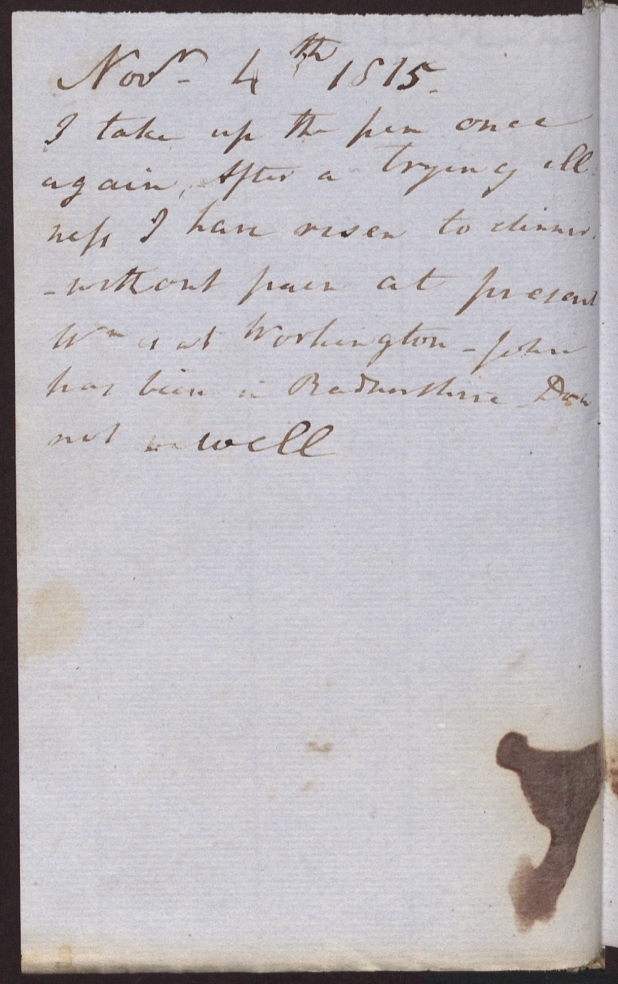 Novr 4th 1815.
I take up the pen once
again, After a trying ill
ness I have risen to dinner.
- without pain at present
Wm is at Workington - John
has been in Radnorshire
not well